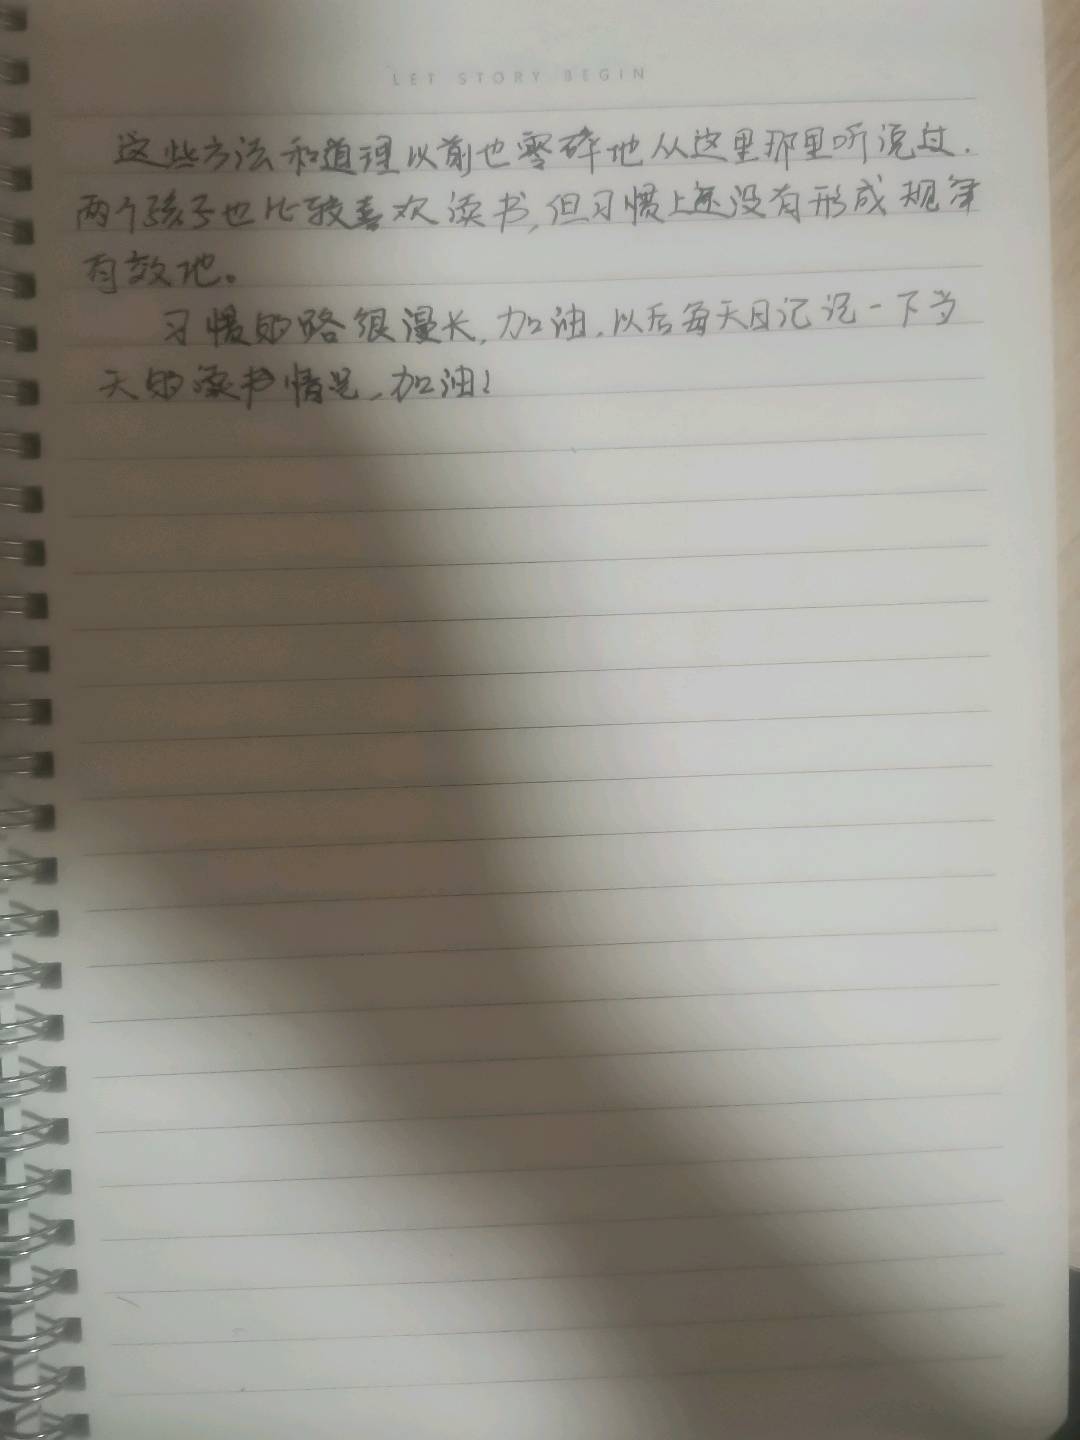 LET STORY BEGIN
这些方法和道理以前也零碎地从这里那里听说过.
两个孩子也比较喜欢读书,但习惯上还没有形成规律
有效地。
习惯的路很漫长,加油.以后每天日记说一下当
天的读书情况,加油!